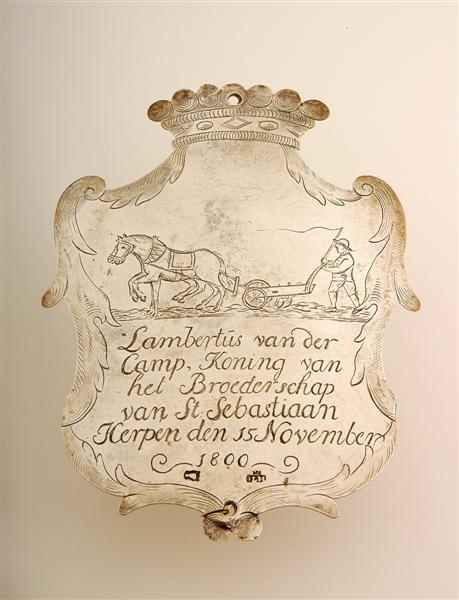 Lambertus van der
Camp, Koning van
het Broederschap
van St. Sebastiaan
Herpen den 15 November
1800